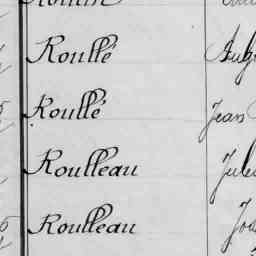 Roullé
Roullé Jean
Roulleau Jules
Roulleau